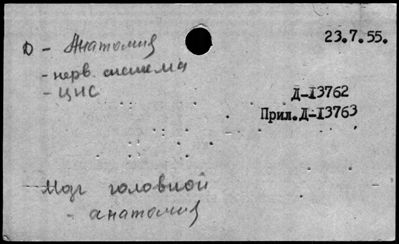 23.7.55.
D - Анатомия
- нерв. система
- ЦНС
Д-I3762
Прил.Д-I3763
Мозг головной
- анатомия